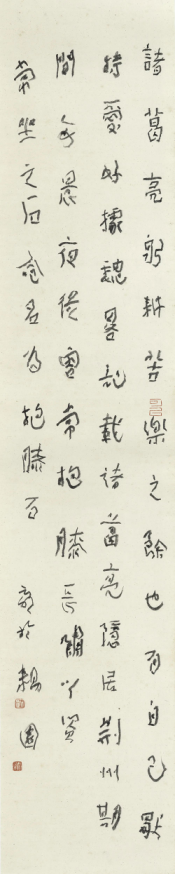 諸葛亮躬耕苦樂之餘也有自己獸
特愛好據魏略記載諸葛亮隱居荊州期
間每晨夜從容常抱膝長嘯以後
常坐之石室名為抱膝石
於耦園